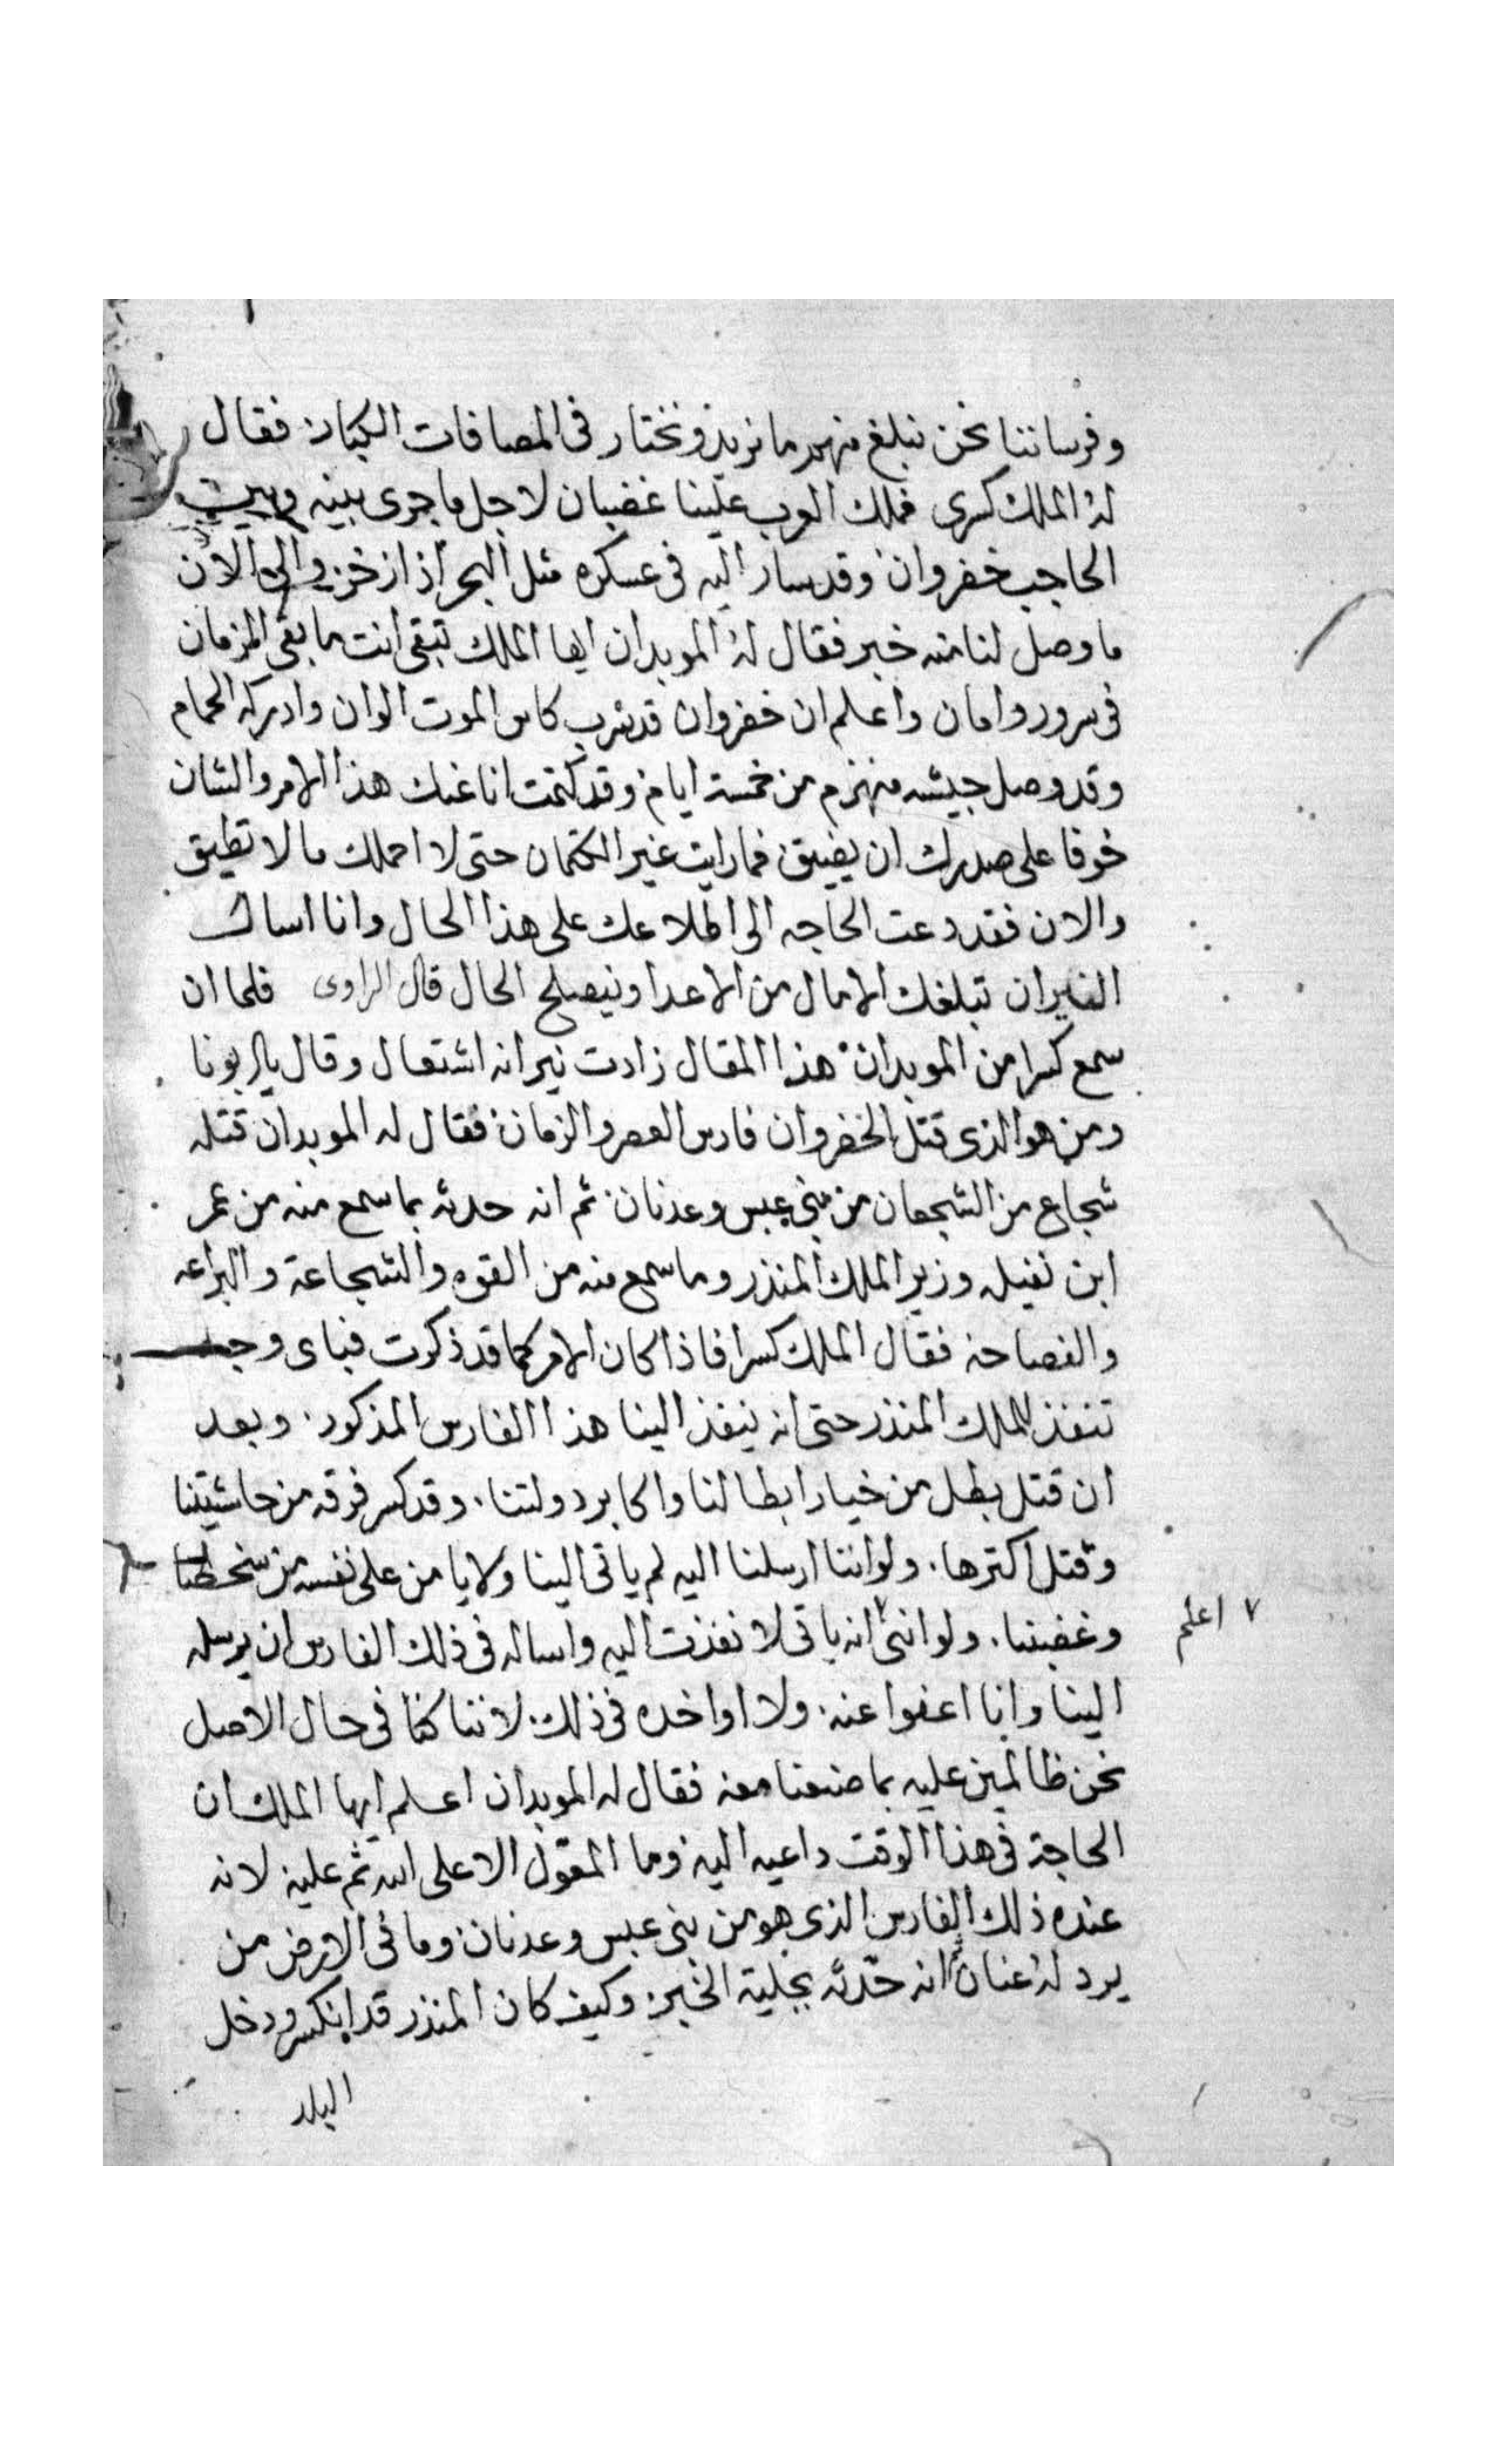 وفرساننا نحن نبلغ منهم ما نريد ونختار في المصافات الكبار فقال
له الملك كسرى فملك العرب علينا غضبان لاجل ما جرى بينه وبين
الحاجب خفروان وقد سار اليه في عسكره مثل البحر اذا زخر والى الان
ما وصل لنا منه خبر فقال له الموبدان ايها الملك تبقى انت ما بقى الزمان
في سرور وامان واعلم ان خفروان قد شرب كاس الموت الوان وادركه الحمام
وقد وصل جيشه منهزم من خمسة ايام وقد كتمت انا عنك هذا الامر والشان
خوفا على صدرك ان يضيق فما رايت غير الكتمان حتى لا احملك ما لا تطيق
والان فقد دعت الحاجه الى اطلاعك على هذا الحال وانا اسال
النيران تبلغك الامال من الاعدا وينصلح الحال قال الراوى فلما ان
سمع كسرا من الموبدان هذا المقال زادت نيرانه اشتعال وقال يا ربونا
ومن هو الذى قتل الخفروان فارس العصر والزمان فقال له الموبدان قتله
شجاع من الشجعان من بني عبس وعدنان ثم انه حدثه بما سمع منه من عمر
ابن نفيله وزير الملك المنذر وما سمع منه من القوه والشجاعة والبراعه
والفصاحه فقال الملك كسرا فاذا كان الامر كما قد ذكرت فباى وجه
تنفذ للملك المنذر حتى انه ينفذ الينا هذا الفارس المذكور وبعد
ان قتل بطل من خيار ابطالنا واكابر دولتنا وقد كسر فرقه من حاشيتنا
وقتل اكثرها ولو اننا ارسلنا اليه لم ياتى الينا ولا يامن على نفسه من سخطنا
وغضبنا ولو اننى ٧ انه ياتى لانفذت اليه واساله في ذلك الفارس ان يرسله
٧ اعلم
الينا وانا اعفوا عنه ولا اواخده في ذلك لاننا كنا في حال الاصل
نحن ظالمين عليه بما صنعنا معه فقال له الموبدان اعلم ايها الملك ان
الحاجة في هذا الوقت داعيه اليه وما المعول الا على الله ثم عليه لانه
عنده ذلك الفارس الذى هو من بنى عبس وعدنان وما في الارض من
يرد له عنان ثم انه حدثه بجلية الخبر وكيف كان المنذر قد انكسر ودخل
البلد